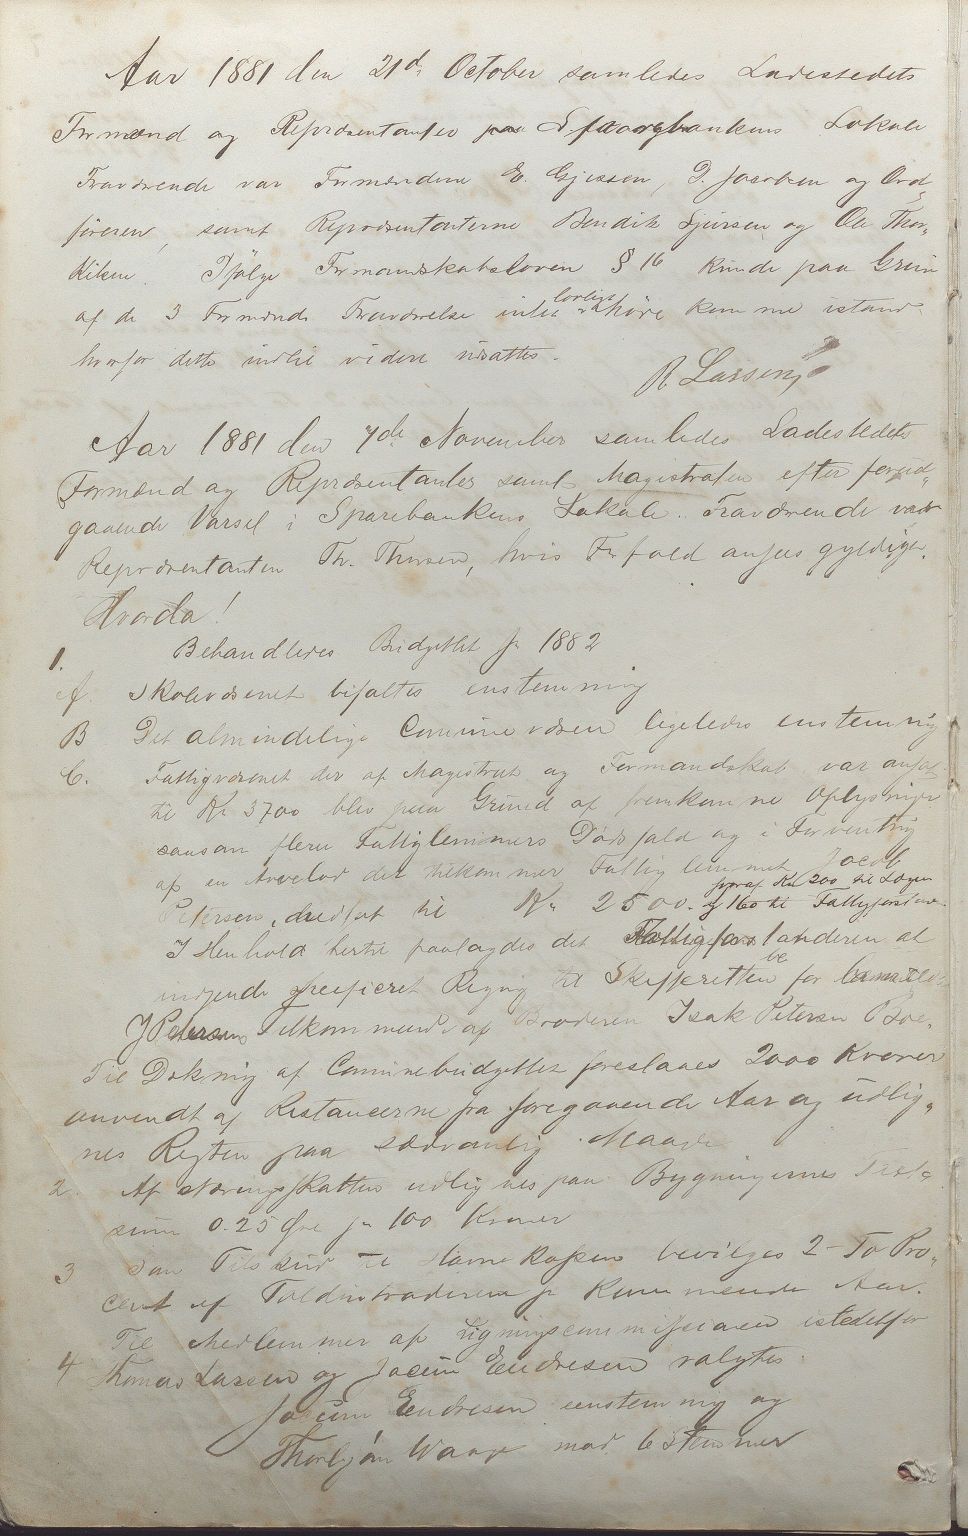 Aar 1881 den 21de October samledes Ladestedets
Formænd og Repræsentanter paa Spaarebankens Lokale
Fraværende var Formændene E. Gjessen, D. Jacobsen og Ord-
føreren, samt Repræsentanterne Bendik Sjursen og Ole Thor-
kilsen. Ifølge Formandskabsloven § 16 kunde paa Grun
af de 3 Formænds Fraværelse intet lovligt Møde komme istand
hvorfor dette indtil videre udsattes.
R Larsen
Aar 1881 den 7de November samledes Ladestedets
Formænd og Repræsentanter samt Magistraten efter forud-
gaaende Varsel i Sparebankens Lokale. Fraværende var
Repræsentanten Th. Thorsen, hvis Forfald ansees gyldigt.
Hvorda!
1. Behandledes Budgettet for 1882
A. Skolevæsenet bifaltes enstemmig
B Det almindelige Commune væsen ligeledes enstemmig
C. Fattigvæsenet der af Magistrat og Formandskab var ansat
til Kr 3700 blev paa Grund af fremkomne Oplysninger
saasom flere Fattiglemmers Dødsfald og i Forventnig
af en Arvelod der tilkommer Fattiglemmet Jacob
Petersen, nedsat til Kr 2500. hvoraf Kr 200 til Lægen
og 160 til Fattigforstand.
I Henhold hertil paalagdes det Fattigforstanderen at
indgende specificeret Regng til Skifteretten for bemeldte
J Petersens Tilkommende af Broderen Isak Petersen Boe.
Til Dækning af Communebudgettet foreslaaes 2000 Kroner
anvendt af Restancerne fra foregaaende Aar og udlig-
nes Resten paa sædvanlig Maade
2. Af Næringsskatten udlignes paa Bygningernes Taxt-
sum 0.25 Øre pr 100 Kroner
3 Som Tilskud til Havnekassen bevilges 2 - To Pro-
cent af Toldintraderne for kommende Aar.
4 Til Medlemmer af Ligningscommissionen istedetfor
Thomas Larsen og Jocum Endresen valgtes
Jocum Endresen eenstemmig og
Thorbjørn Waage mod 6 Stemmer